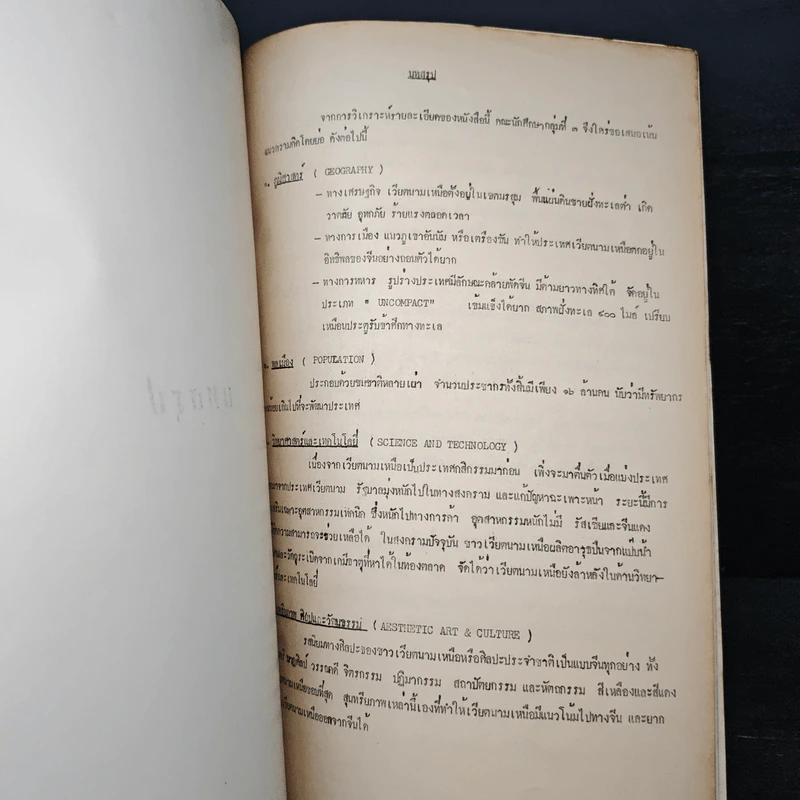 บทสรุป
จากการวิเคราะห์รายละเอียดของหนังสือนี้ คณะนักศึกษากลุ่มที่ ๓ จึงใคร่ขอเสนอเน้น
แนวความคิดโดยย่อ ดังต่อไปนี้
๑. ภูมิศาสตร์ ( GEOGRAPHY )
– ทางเศรษฐกิจ เวียดนามเหนือตั้งอยู่ในเขตมรสุม พื้นแผ่นดินชายฝั่งทะเลต่ำ เกิด
วาตภัย อุทกภัย ร้ายแรงตลอดเวลา
– ทางการเมือง แนวภูเขาอันนัม หรือเตรืองซัน ทำให้ประเทศเวียดนามเหนือตกอยู่ใน
อิทธิพลของจีนอย่างถอนตัวได้ยาก
– ทางการทหาร รูปร่างประเทศมีลักษณะคล้ายพัดจีน มีด้ามยาวทางทิศใต้ จัดอยู่ใน
ประเภท " UNCOMPACT" เข้มแข็งได้ยาก สภาพฝั่งทะเล ๔๐๐ ไมล์ เปรียบ
เหมือนประตูรับข้าศึกทางทะเล
พลเมือง ( POPULATION )
ประกอบด้วยชนชาติหลายเผ่า จำนวนประชากรทั้งสิ้นมีเพียง ๑๖ ล้านคน นับว่ามีทรัพยากร
น้อยเกินไปที่จะพัฒนาประเทศ
วิทยาศาสตร์และเทคโนโลยี่ ( SCIENCE AND TECHNOLOGY )
เนื่องจากเวียดนามเหนือเป็นประเทศกสิกรรมมาก่อน เพิ่งจะมาตื่นตัวเมื่อแบ่งประเทศ
มาจากประเทศเวียดนาม รัฐบาลมุ่งหนักไปในทางสงคราม และแก้ปัญหาฉะเพาะหน้า ระยะนี้มีการ
เฉพาะอุตสาหกรรมเทคนิค ซึ่งหนักไปทางการค้า อุตสาหกรรมหนักไม่มี รัสเซียและจีนแดง
ความสามารถจะช่วยเหลือได้ ในสงครามปัจจุบัน ชาวเวียดนามเหนือผลิตอาวุธปืนจากแป๊บน้ำ
และวัตถุระเบิดจากเคมีธาตุที่หาได้ในท้องตลาด จัดได้ว่าเวียดนามเหนือยังล้าหลังในด้านวิทยา–
และเทคโนโลยี่
ศิลปและวัฒนธรรม ( AESTHETIC ART & CULTURE )
รสนิยมทางศิลปะของชาวเวียดนามเหนือหรือศิลปะประจำชาติเป็นแบบจีนทุกอย่าง ทั้ง
นาฏศิลป์ วรรณคดี จิตรกรรม ปฏิมากรรม สถาปัตยกรรม และหัตถกรรม สีเหลืองและสีแดง
เวียดนามเหนือชอบที่สุด สุนทรียภาพเหล่านี้เองที่ทำให้เวียดนามเหนือมีแนวโน้มไปทางจีน และยาก
เวียดนามเหนือออกจากจีนได้